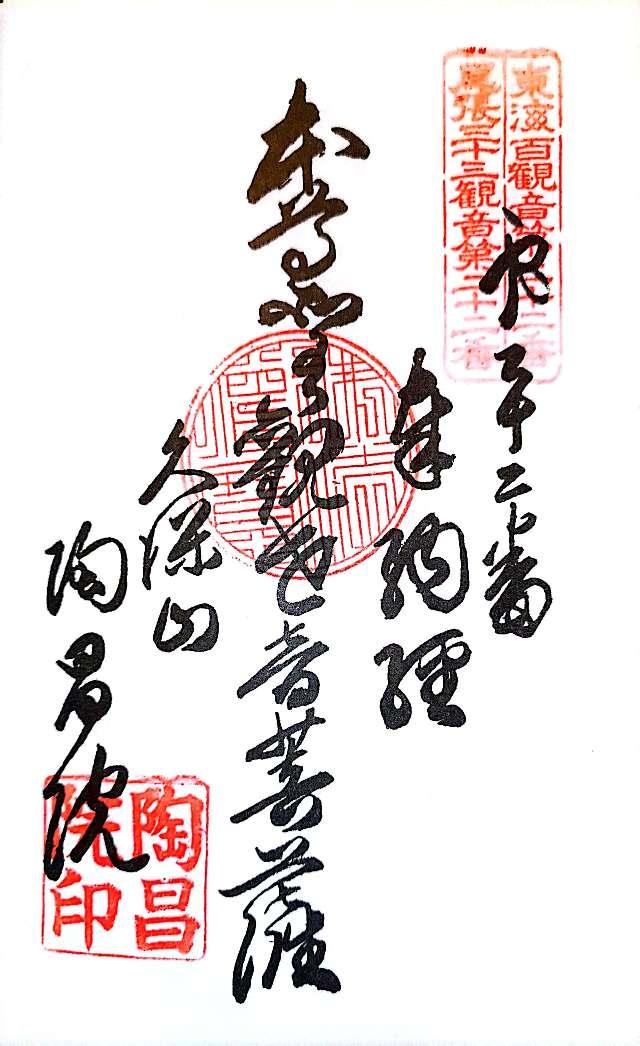 東海百観音第二十二番
尾張三十三観音第二十二番
二十二番
奉納経
本尊聖觀世音菩薩
久保山
陶昌院
陶昌院印